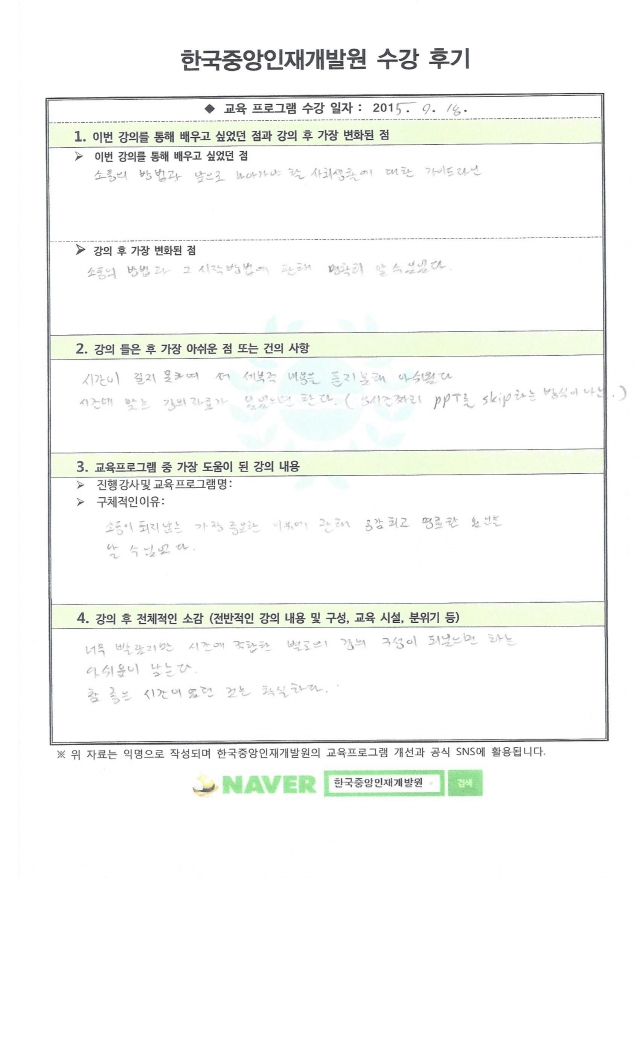 한국중앙인재개발원 수강 후기
◆ 교육 프로그램 수강 일자 : 2015. 9. 18.
1. 이번 강의를 통해 배우고 싶었던 점과 강의 후 가장 변화된 점
➢ 이번 강의를 통해 배우고 싶었던 점
소통의 방법과 앞으로 나아가야 할 사회생활에 대한 가이드라인
➢ 강의 후 가장 변화된 점
소통의 방법과 그 시작방법에 관해 명확히 알 수 있었다.
2. 강의 들은 후 가장 아쉬운 점 또는 건의 사항
시간이 길지 못하여 더 세부적 내용을 듣지 못해 아쉬웠다
시간대 맞는 강의자료가 있었으면 한다. ( 3시간짜리 PPT를 skip하는 방식이 아닌.)
3. 교육프로그램 중 가장 도움이 된 강의 내용
➢ 진행강사및교육프로그램명:
➢ 구체적인이유:
소통이 되지 않는 가장 중요한 이유에 관해 공감되고 명료한
알 수 있었다.
4. 강의 후 전체적인 소감 (전반적인 강의 내용 및 구성, 교육 시설, 분위기 등)
너무 발랐지만 시간에 적합한 별도의 강의 구성이 되었으면 하는
아쉬움이 남는다.
참 좋은 시간이었던 것은 확실하다.
※ 위 자료는 익명으로 작성되며 한국중앙인재개발원의 교육프로그램 개선과 공식 SNS에 활용됩니다.
NAVER 한국중앙인재개발원 검색